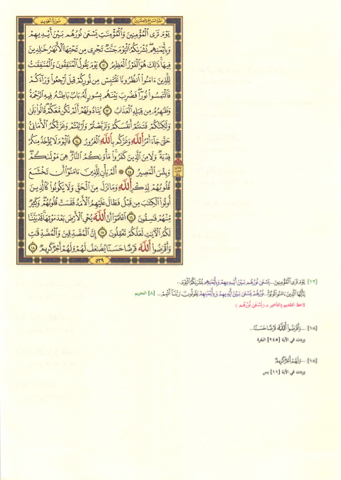 الجزء السابع والعشرون سورة الحديد
يَوْمَ تَرَى ٱلْمُؤْمِنِينَ وَٱلْمُؤْمِنَٰتِ يَسْعَىٰ نُورُهُم بَيْنَ أَيْدِيهِمْ
وَبِأَيْمَٰنِهِم بُشْرَىٰكُمُ ٱلْيَوْمَ جَنَّٰتٌ تَجْرِى مِن تَحْتِهَا ٱلْأَنْهَٰرُ خَٰلِدِينَ
فِيهَا ذَٰلِكَ هُوَ ٱلْفَوْزُ ٱلْعَظِيمُ ١٢ يَوْمَ يَقُولُ ٱلْمُنَٰفِقُونَ وَٱلْمُنَٰفِقَٰتُ
لِلَّذِينَ ءَامَنُوا۟ ٱنظُرُونَا نَقْتَبِسْ مِن نُّورِكُمْ قِيلَ ٱرْجِعُوا۟ وَرَآءَكُمْ
فَٱلْتَمِسُوا۟ نُورًا فَضُرِبَ بَيْنَهُم بِسُورٍ لَّهُۥ بَابٌۢ بَاطِنُهُۥ فِيهِ ٱلرَّحْمَةُ
وَظَٰهِرُهُۥ مِن قِبَلِهِ ٱلْعَذَابُ ١٣ يُنَادُونَهُمْ أَلَمْ نَكُن مَّعَكُمْ قَالُوا۟ بَلَىٰ
وَلَٰكِنَّكُمْ فَتَنتُمْ أَنفُسَكُمْ وَتَرَبَّصْتُمْ وَٱرْتَبْتُمْ وَغَرَّتْكُمُ ٱلْأَمَانِىُّ
حَتَّىٰ جَآءَ أَمْرُ ٱللَّهِ وَغَرَّكُم بِٱللَّهِ ٱلْغَرُورُ ١٤ فَٱلْيَوْمَ لَا يُؤْخَذُ مِنكُمْ
فِدْيَةٌ وَلَا مِنَ ٱلَّذِينَ كَفَرُوا۟ مَأْوَىٰكُمُ ٱلنَّارُ هِىَ مَوْلَىٰكُمْ
وَبِئْسَ ٱلْمَصِيرُ ١٥ أَلَمْ يَأْنِ لِلَّذِينَ ءَامَنُوٓا۟ أَن تَخْشَعَ
قُلُوبُهُمْ لِذِكْرِ ٱللَّهِ وَمَا نَزَلَ مِنَ ٱلْحَقِّ وَلَا يَكُونُوا۟ كَٱلَّذِينَ
أُوتُوا۟ ٱلْكِتَٰبَ مِن قَبْلُ فَطَالَ عَلَيْهِمُ ٱلْأَمَدُ فَقَسَتْ قُلُوبُهُمْ وَكَثِيرٌ
مِّنْهُمْ فَٰسِقُونَ ١٦ ٱعْلَمُوٓا۟ أَنَّ ٱللَّهَ يُحْىِ ٱلْأَرْضَ بَعْدَ مَوْتِهَا قَدْ بَيَّنَّا
لَكُمُ ٱلْءَايَٰتِ لَعَلَّكُمْ تَعْقِلُونَ ١٧ إِنَّ ٱلْمُصَّدِّقِينَ وَٱلْمُصَّدِّقَٰتِ
وَأَقْرَضُوا۟ ٱللَّهَ قَرْضًا حَسَنًا يُضَٰعَفُ لَهُمْ وَلَهُمْ أَجْرٌ كَرِيمٌ ١٨
٥٣٩
[١٢] يَوْمَ تَرَى ٱلْمُؤْمِنِينَ... يَسْعَىٰ نُورُهُم بَيْنَ أَيْدِيهِمْ وَبِأَيْمَٰنِهِم بُشْرَىٰكُمُ ٱلْيَوْمَ...
يَٰٓأَيُّهَا ٱلَّذِينَ ءَامَنُوا۟ تُوبُوٓا۟... نُورُهُمْ يَسْعَىٰ بَيْنَ أَيْدِيهِمْ وَبِأَيْمَٰنِهِمْ يَقُولُونَ رَبَّنَآ أَتْمِمْ... [٨] التحريم
[١٨] ...وَأَقْرَضُوا۟ ٱللَّهَ قَرْضًا حَسَنًا...
وردت في الآية [٢٤٥] البقرة
[١٨] ...وَلَهُمْ أَجْرٌ كَرِيمٌ
وردت في الآية [١١] يس